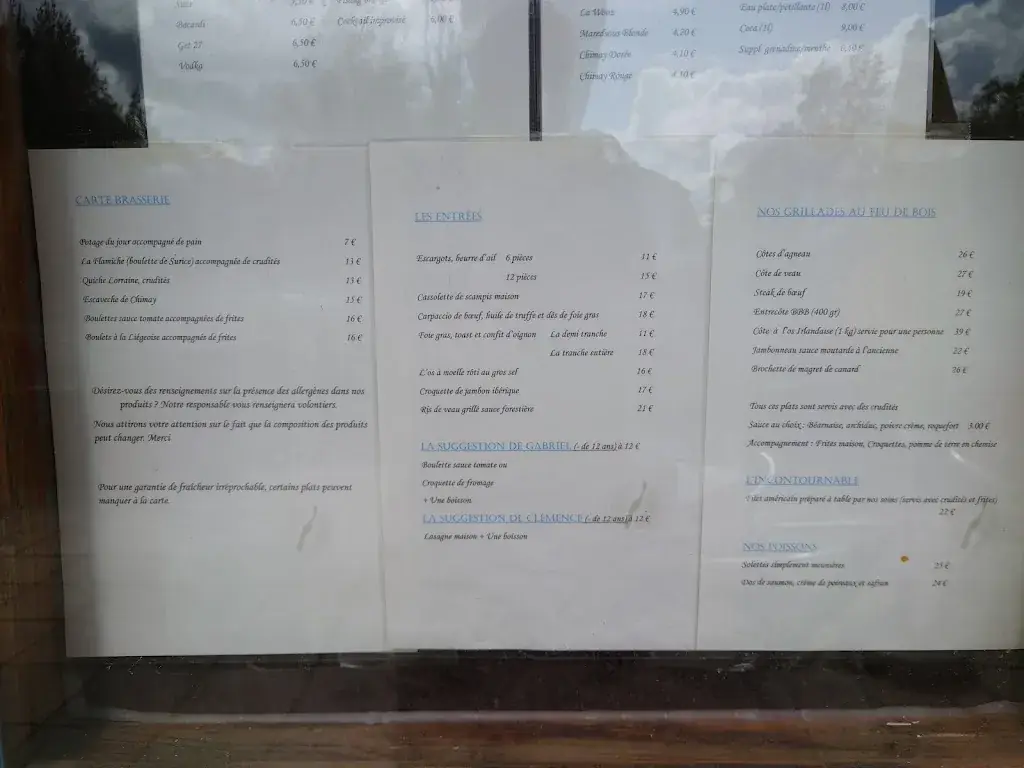 Bacardi 6,50 €
Get 27 6,50 €
Vodka 6,50 €
Cocktail improvisé 6,00 €
4,90 €
Maredsous Blonde 4,20 €
Chimay Dorée 4,10 €
Chimay Rouge 4,10 €
Eau plate/pétillante (1l) 8,00 €
Coca (1l) 9,00 €
Suppl grenadine/menthe 0,10 €
CARTE BRASSERIE
Potage du jour accompagné de pain 7 €
La Flamiche (boulette de Surice) accompagnée de crudités 13 €
Quiche Lorraine, crudités 13 €
Escaveche de Chimay 15 €
Boulettes sauce tomate accompagnées de frites 16 €
Boulets à la Liégeoise accompagnés de frites 16 €
Désirez-vous des renseignements sur la présence des allergènes dans nos
produits ? Notre responsable vous renseignera volontiers.
Nous attirons votre attention sur le fait que la composition des produits
peut changer. Merci
Pour une garantie de fraîcheur irréprochable, certains plats peuvent
manquer à la carte.
LES ENTRÉES
Escargots, beurre d'ail 6 pièces 11 €
12 pièces 15 €
Cassolette de scampis maison 17 €
Carpaccio de bœuf, huile de truffe et dés de foie gras 18 €
Foie gras, toast et confit d'oignon La demi tranche 11 €
La tranche entière 18 €
L'os à moelle rôti au gros sel 16 €
Croquette de jambon ibérique 17 €
Ris de veau grillé sauce forestière 21 €
LA SUGGESTION DE GABRIEL (- de 12 ans) à 12 €
Boulette sauce tomate ou
Croquette de fromage
+ Une boisson
LA SUGGESTION DE CLÉMENCE (- de 12 ans) à 12 €
Lasagne maison + Une boisson
NOS GRILLADES AU FEU DE BOIS
Côtes d'agneau 26 €
Côte de veau 27 €
Steak de bœuf 19 €
Entrecôte BBB (400 gr) 27 €
Côte à l'os Irlandaise (1 kg) servie pour une personne 39 €
Jambonneau sauce moutarde à l'ancienne 22 €
Brochette de magret de canard 26 €
Tous ces plats sont servis avec des crudités
Sauce au choix : Béarnaise, archiduc, poivre crème, roquefort 3.00 €
Accompagnement : Frites maison, Croquettes, pomme de terre en chemise
L'INCONTOURNABLE
Filet américain préparé à table par nos soins (servis avec crudités et frites)
22 €
NOS POISSONS
Solettes simplement meunières 25 €
Dos de saumon, crème de poireaux et safran 24 €